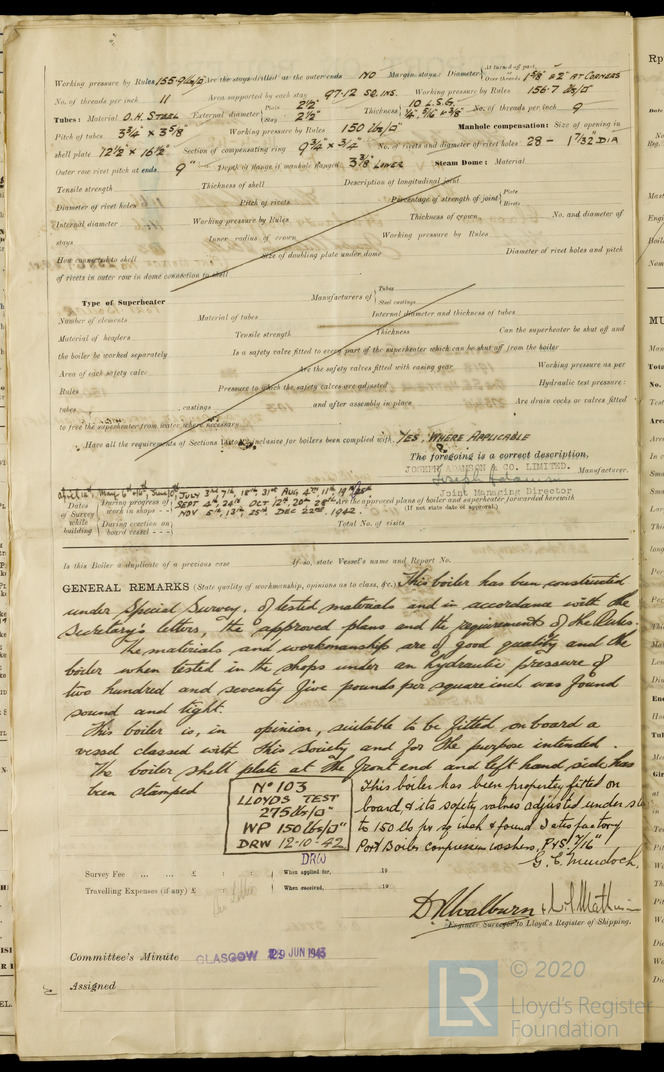 Working pressure by Rules 155.9 lbs/□" Are the stays drilled at the outer ends NO Margin stays: Diameter { At turned off part, or Over threads 1 5/8" & 2" AT CORNERS
No. of threads per inch 11 Area supported by each stay 97.12 SQ. INS. Working pressure by Rules 156.7 lbs/□"
Tubes: Material O.H. STEEL External diameter { Plain 2½" Stay 2½" Thickness { 10 L.S.G. ¼", 5/16" & 3/8" No. of threads per inch 9
Pitch of tubes 3¾" x 3 5/8" Working pressure by Rules 150 lbs/□" Manhole compensation: Size of opening in
shell plate 12½" x 16½" Section of compensating ring 9¾" x ¾" No. of rivets and diameter of rivet holes 28 - 1 7/32" DIA
Outer row rivet pitch at ends 9" Depth of flange if manhole flanged 3 3/8" LOWER Steam Dome: Material
Tensile strength Thickness of shell Description of longitudinal joint
Diameter of rivet holes Pitch of rivets Percentage of strength of joint { Plate Rivets
Internal diameter Working pressure by Rules Thickness of crown No. and diameter of
stays Inner radius of crown Working pressure by Rules
How connected to shell Size of doubling plate under dome Diameter of rivet holes and pitch
of rivets in outer row in dome connection to shell
Type of Superheater Manufacturers of { Tubes Steel castings
Number of elements Material of tubes Internal diameter and thickness of tubes
Material of headers Tensile strength Thickness Can the superheater be shut off and
the boiler be worked separately Is a safety valve fitted to every part of the superheater which can be shut off from the boiler
Area of each safety valve Are the safety valves fitted with easing gear Working pressure as per
Rules Pressure to which the safety valves are adjusted Hydraulic test pressure:
tubes castings and after assembly in place Are drain cocks or valves fitted
to free the superheater from water where necessary
Have all the requirements of Sections inclusive for boilers been complied with. YES, WHERE APPLICABLE
The foregoing is a correct description,
JOSEPH ADAMSON & CO. LIMITED. Manufacturer.
Joseph Adamson
Joint Managing Director
Dates of Survey while building { During progress of work in shops - - JULY 3rd, 7th, 18th, 31st AUG 4th, 11th, 19th
SEPT 4th, 24th OCT 12th, 20th, 28th
NOV 5th, 13th, 25th DEC 22nd 1942.
During erection on board vessel - - -
Are the approved plans of boiler and superheater forwarded herewith
(If not state date of approval.)
Total No. of visits
Is this Boiler a duplicate of a previous case If so, state Vessel's name and Report No.
GENERAL REMARKS (State quality of workmanship, opinions as to class, &c.) This boiler has been constructed
under Special Survey, of tested materials and in accordance with the
Secretary's letters, the approved plans and the requirements of the Rules.
The materials and workmanship are of good quality and the
boiler when tested in the shops under an hydraulic pressure of
two hundred and seventy five pounds per square inch was found
sound and tight.
This boiler is, in opinion, suitable to be fitted on board a
vessel classed with this Society and for the purpose intended.
The boiler shell plate at the front end and left hand side, has
been stamped
No 103
LLOYDS TEST
275 lbs/□"
WP 150 lbs/□"
DRW 12-10-42
DRW
This boiler has been properly fitted on
board, & its safety valves adjusted under
to 150 lbs per sq inch & found satisfactory
Port Boiler compression washers, P & S 7/16"
G. C. Murdoch.
Survey Fee ... ... £ : : When applied for, 19
Travelling Expenses (if any) £ : : When received, 19
D R Walburn &
Engineer Surveyor to Lloyd's Register of Shipping.
Committee's Minute GLASGOW 29 JUN 1943
Assigned
LR
© 2020
Lloyd's Register
Foundation